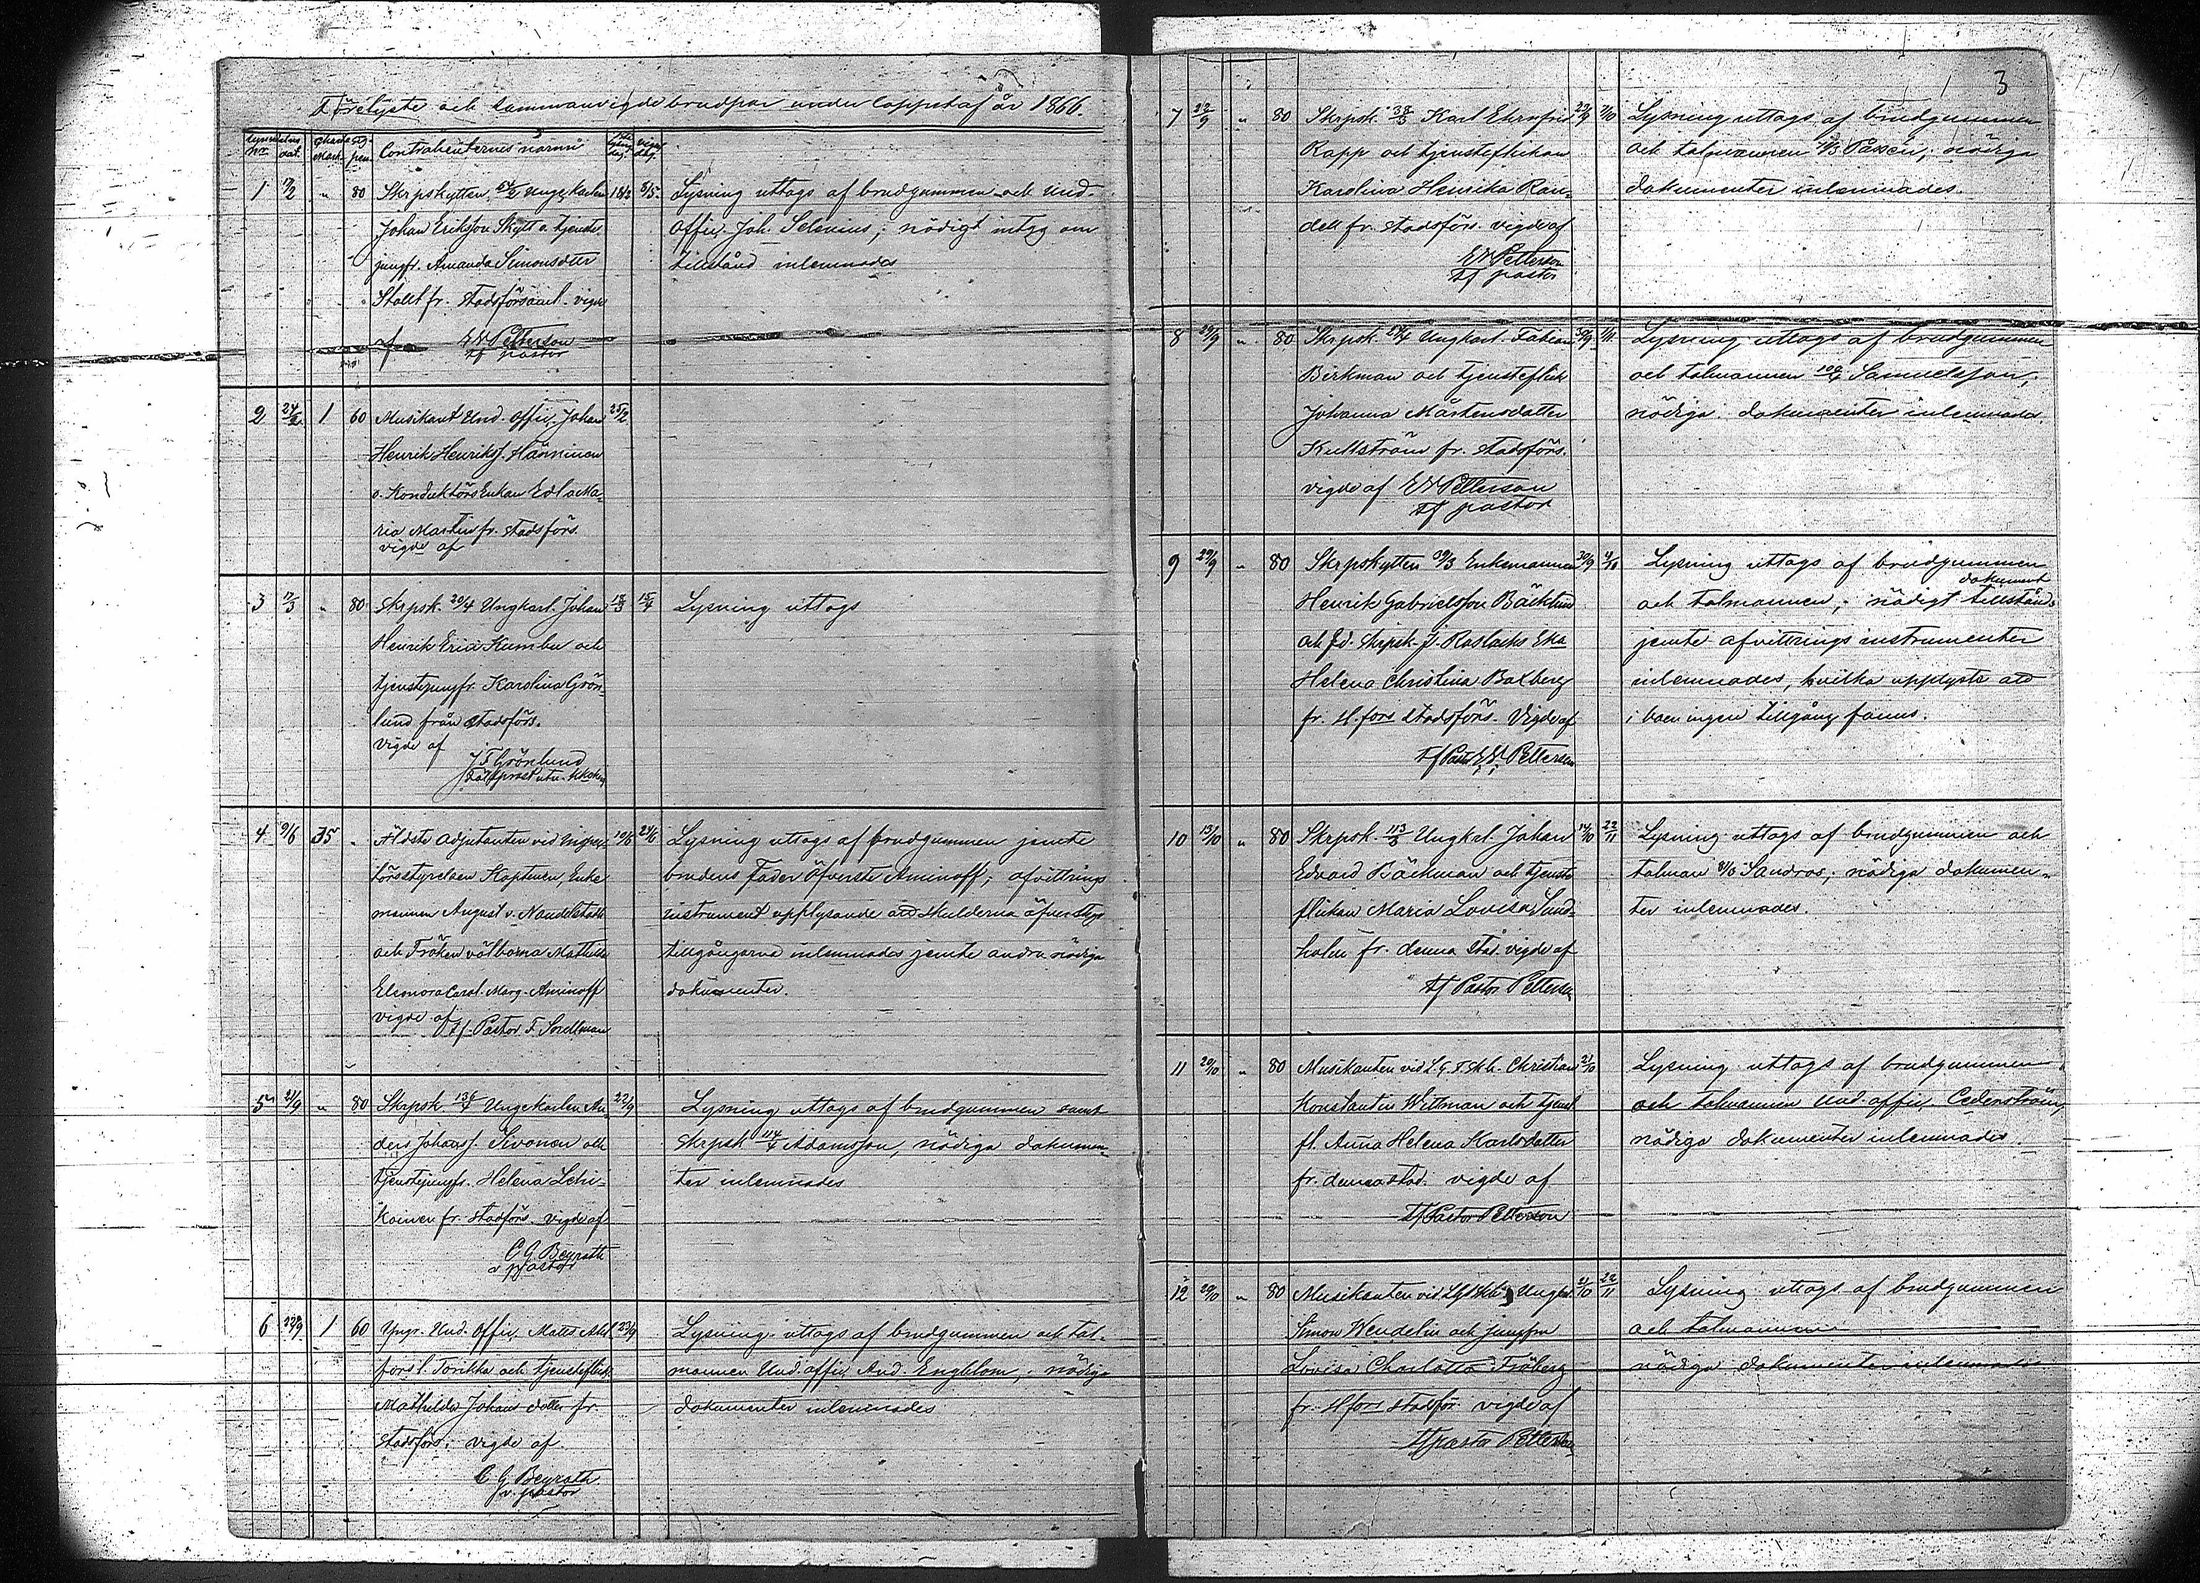 3
Förelyste och sammanvigde brudpar under loppet af år 1866.
Contrahenternes namn
1 17/2 " 80 Skrpskytten 54/2 Ungekarlen 18/2 5/5 Lysning uttogs af brudgummen och Und.
Johan Eriksson Skytt o. tjenste Offic. Joh. Selenius; nödigt intyg om
jungfr. Amanda Simonsdotter tillstånd inlemnades
Stalt fr. Stadsförsaml. vigde
af EWPetterson
tf pastor
2 24/2 1 60 Musikant Und. Offic. Johan 25/2
Henrik Henriksf. Hänninen
o. Konduktörs Enkan Edla Ma-
ria Martin fr. stadsförs.
vigde af
3 17/3 " 80 Skrpsk. 20/4 Ungkarl. Johan 18/3 15/4 Lysning uttogs
Henrik Erics. Kumbu och
tjenstejungfr. Karolina Grön-
lund från stadsförs.
vigde af
J F Grönlund
4 9/6 35 " Äldste Adjutanten vid Ingeni- 10/6 24/6 Lysning uttogs af brudgummen jemte
örsstyrelsen Kaptenen, Enke brudens Fader Öfverste Aminoff; afvittrings
mannen August v. Nandelstadt instrument upplysande att skulderna öfverstiga
och Fröken välborna Mathilda tillgångarne inlemnades jemte andra nödiga
Eleonora Carol. Marg. Aminoff dokumenter.
vigde af tf. Pastor F. Snellman
5 21/9 " 80 Skrpsk 136/4 Ungekarlen An- 22/9 Lysning uttogs af brudgummen samt
ders Johansf. Kivonen och Skrpsk 114/4 Adamsson, nödiga dokumen-
tjenstejungfr. Helena Lehi- ter inlemnades
koinen fr. stadsförs. vigde af
C G Beyrath
v pastor
6 22/9 1 60 Yngr. Und. Offic. Matts Ad 23/9 Lysning uttogs af brudgummen och tal-
forss l. Torikka och tjensteflick. mannen Und. offic. And. Engblom; nödiga
Mathilda Johansdotter fr. dokumenter inlemnades
stadsförs. vigde af
C G Beyrath
v. pastor
7 22/9 " 80 Skrpsk. 38/3 Karl Ehrnfrid 23/9 7/10 Lysning uttogs af brudgummen
Rapp och tjensteflickan och talmannen Paxen; nödiga
Karolina Henrika Ran- dokumenter inlemnades.
dell fr. stadsförs. vigde af
EWPetterson
tf pastor
8 29/9 " 80 Skrpsk. Ungkarl. Fabian 30/9 1/11 Lysning uttogs af brudgummen
Birkman och tjensteflick och talmannen 100/4 Samuelsson;
Johanna Mårtensdotter nödiga dokumenter inlemnade.
Kullström fr. stadsförs.
vigde af EWPetterson
tf pastor
9 29/9 " 80 Skrpskytten 39/3 Enkemannen 30/9 4/10 Lysning uttogs af brudgummen
Henrik Gabrielsson Bäcklund och talmannen; nödigt tillstånds dokument
och fd. Skrpsk. J. Raslacks Eka jemte afvittrings instrumenter
Helena Christina Boxberg inlemnades, hvilka upplyste att
fr. H.fors stadsförs. Vigde af i boen ingen tillgång fanns.
tf Pastor EW Petterson
10 13/10 " 80 Skrpsk. 113/3 Ungkrl. Johan 14/10 22/11 Lysning uttogs af brudgummen och
Edvard Bäckman och tjenste talman Sandros; nödiga dokumen-
flickan Maria Lovisa Sund- ter inlemnades.
holm fr. denna stad. vigde af
tf Pastor Petterson
11 20/10 " 80 Musikanten vid L.G.F. Skb. Christian 21/10 Lysning uttogs af brudgummen
Konstantin Wittman och tjenst och talmannen Und. offic. Cederström,
fl. Anna Helena Karlsdotter nödiga dokumenter inlemnades.
fr. denna stad. vigde af
tf Pastor Petterson
12 20/10 " 80 Musikanten vid Ungkrl. 21/10 22/11 Lysning uttogs af brudgummen
Simon Wendelin och jungfru och talmannen
Lovisa Charlotta Fröberg nödiga dokumenter inlemnades
fr. H.fors stadsför. vigde af
tf pastor Petterson